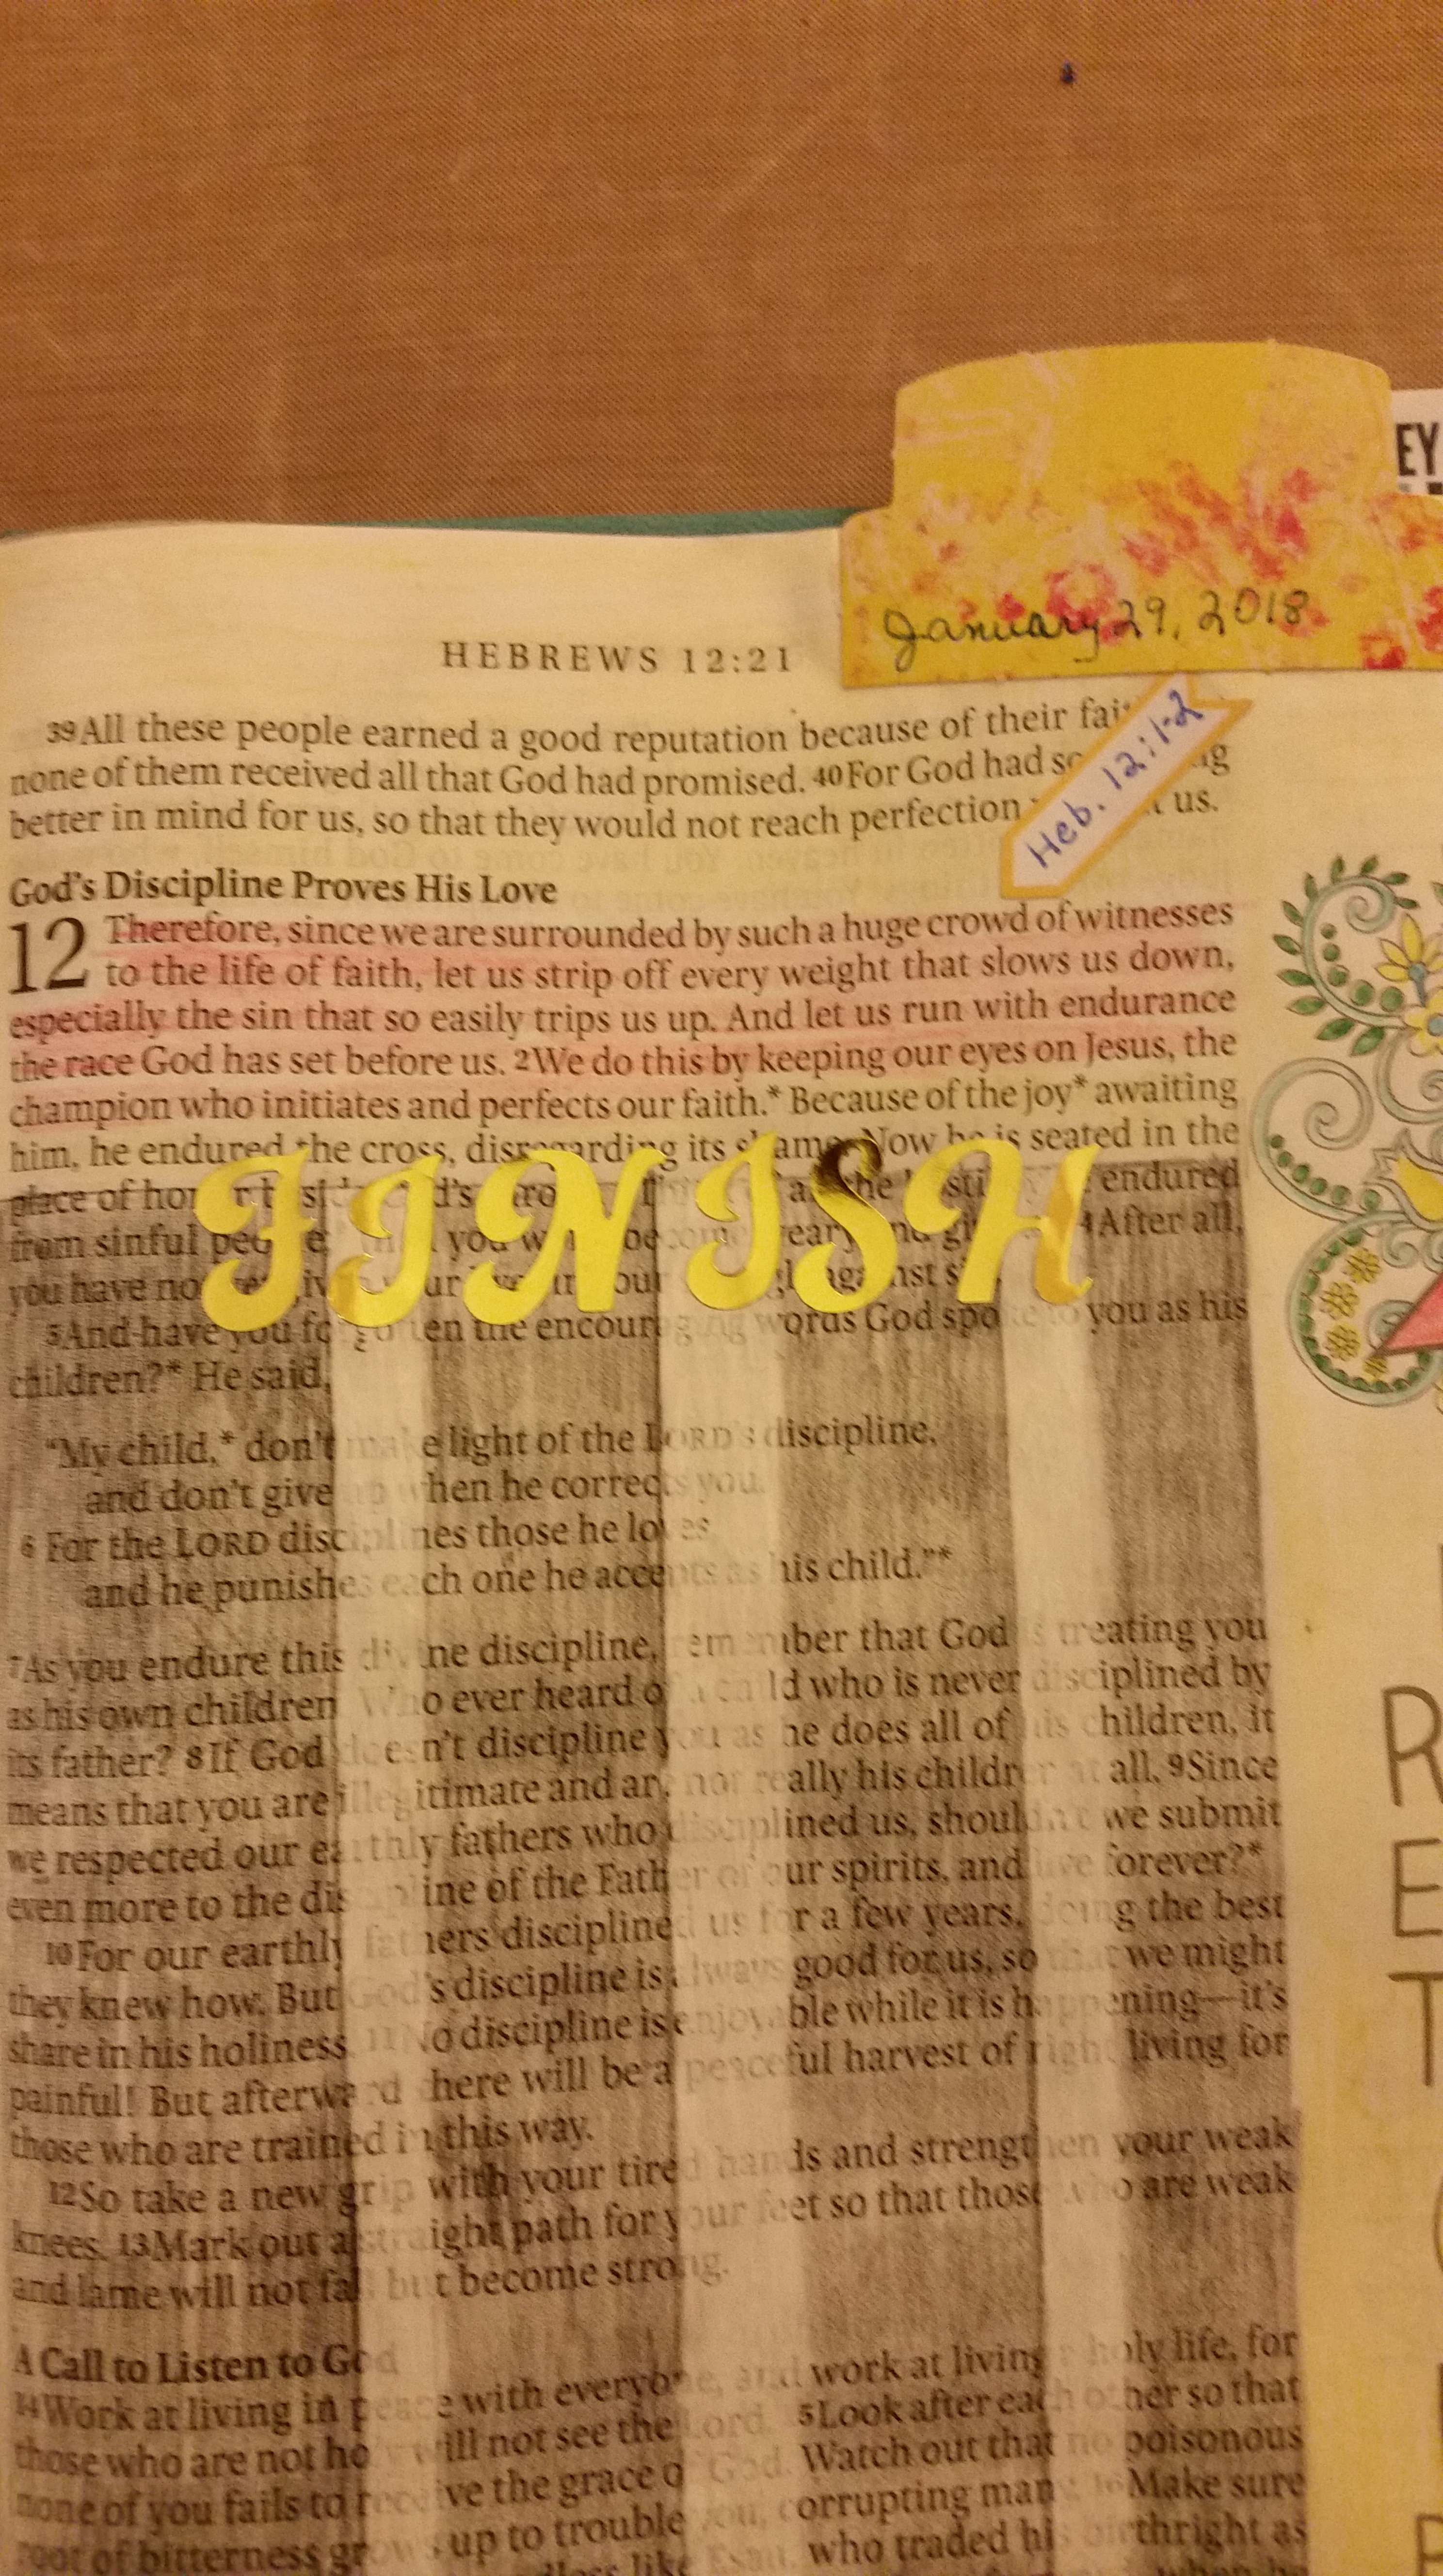 EY
January 29, 2018
HEBREWS 12:21
Heb. 12:1-2
39All these people earned a good reputation because of their
none of them received all that God had promised. 40For God had
better in mind for us, so that they would not reach perfection us.
God's Discipline Proves His Love
12 Therefore, since we are surrounded by such a huge crowd of witnesses
to the life of faith, let us strip off every weight that slows us down,
especially the sin that so easily trips us up. And let us run with endurance
the race God has set before us. 2We do this by keeping our eyes on Jesus, the
champion who initiates and perfects our faith.* Because of the joy* awaiting
him, he endured the cross, disregarding its shame. Now he is seated in the
FINISH
place of endured
from sinful you 4After all,
you have
5And have you en the encouraging words God spoke to you as his
children?* He said,
"My child,* don't make light of the LORD's discipline,
and don't give when he corrects you.
6 For the LORD disciplines those he loves
and he punishes each one he accepts as his child."*
7As you endure this divine discipline, remember that God is treating you
as his own children Who ever heard of a child who is never disciplined by
its father? 8If God doesn't discipline you as he does all of his children, it
means that you are illegitimate and are not really his children at all. 9Since
we respected our earthly fathers who disciplined us, shouldn't we submit
even more to the discipline of the Father of our spirits, and live forever?*
10For our earthly fathers disciplined us for a few years, doing the best
they knew how. But God's discipline is always good for us, so that we might
share in his holiness. 11No discipline is enjoyable while it is happening—it's
painful! But afterward there will be a peaceful harvest of right living for
those who are trained in this way.
12So take a new grip with your tired hands and strengthen your weak
knees. 13Mark out a straight path for your feet so that those who are weak
and lame will not fall but become strong.
A Call to Listen to God
14Work at living in peace with everyone, and work at living holy life, for
those who are not will not see the Lord. 5Look after each other so that
none of you fails to receive the grace of God. Watch out that no poisonous
root of bitterness grows up to trouble you, corrupting many 16Make sure
Esau, who traded his birthright as
R
E
T